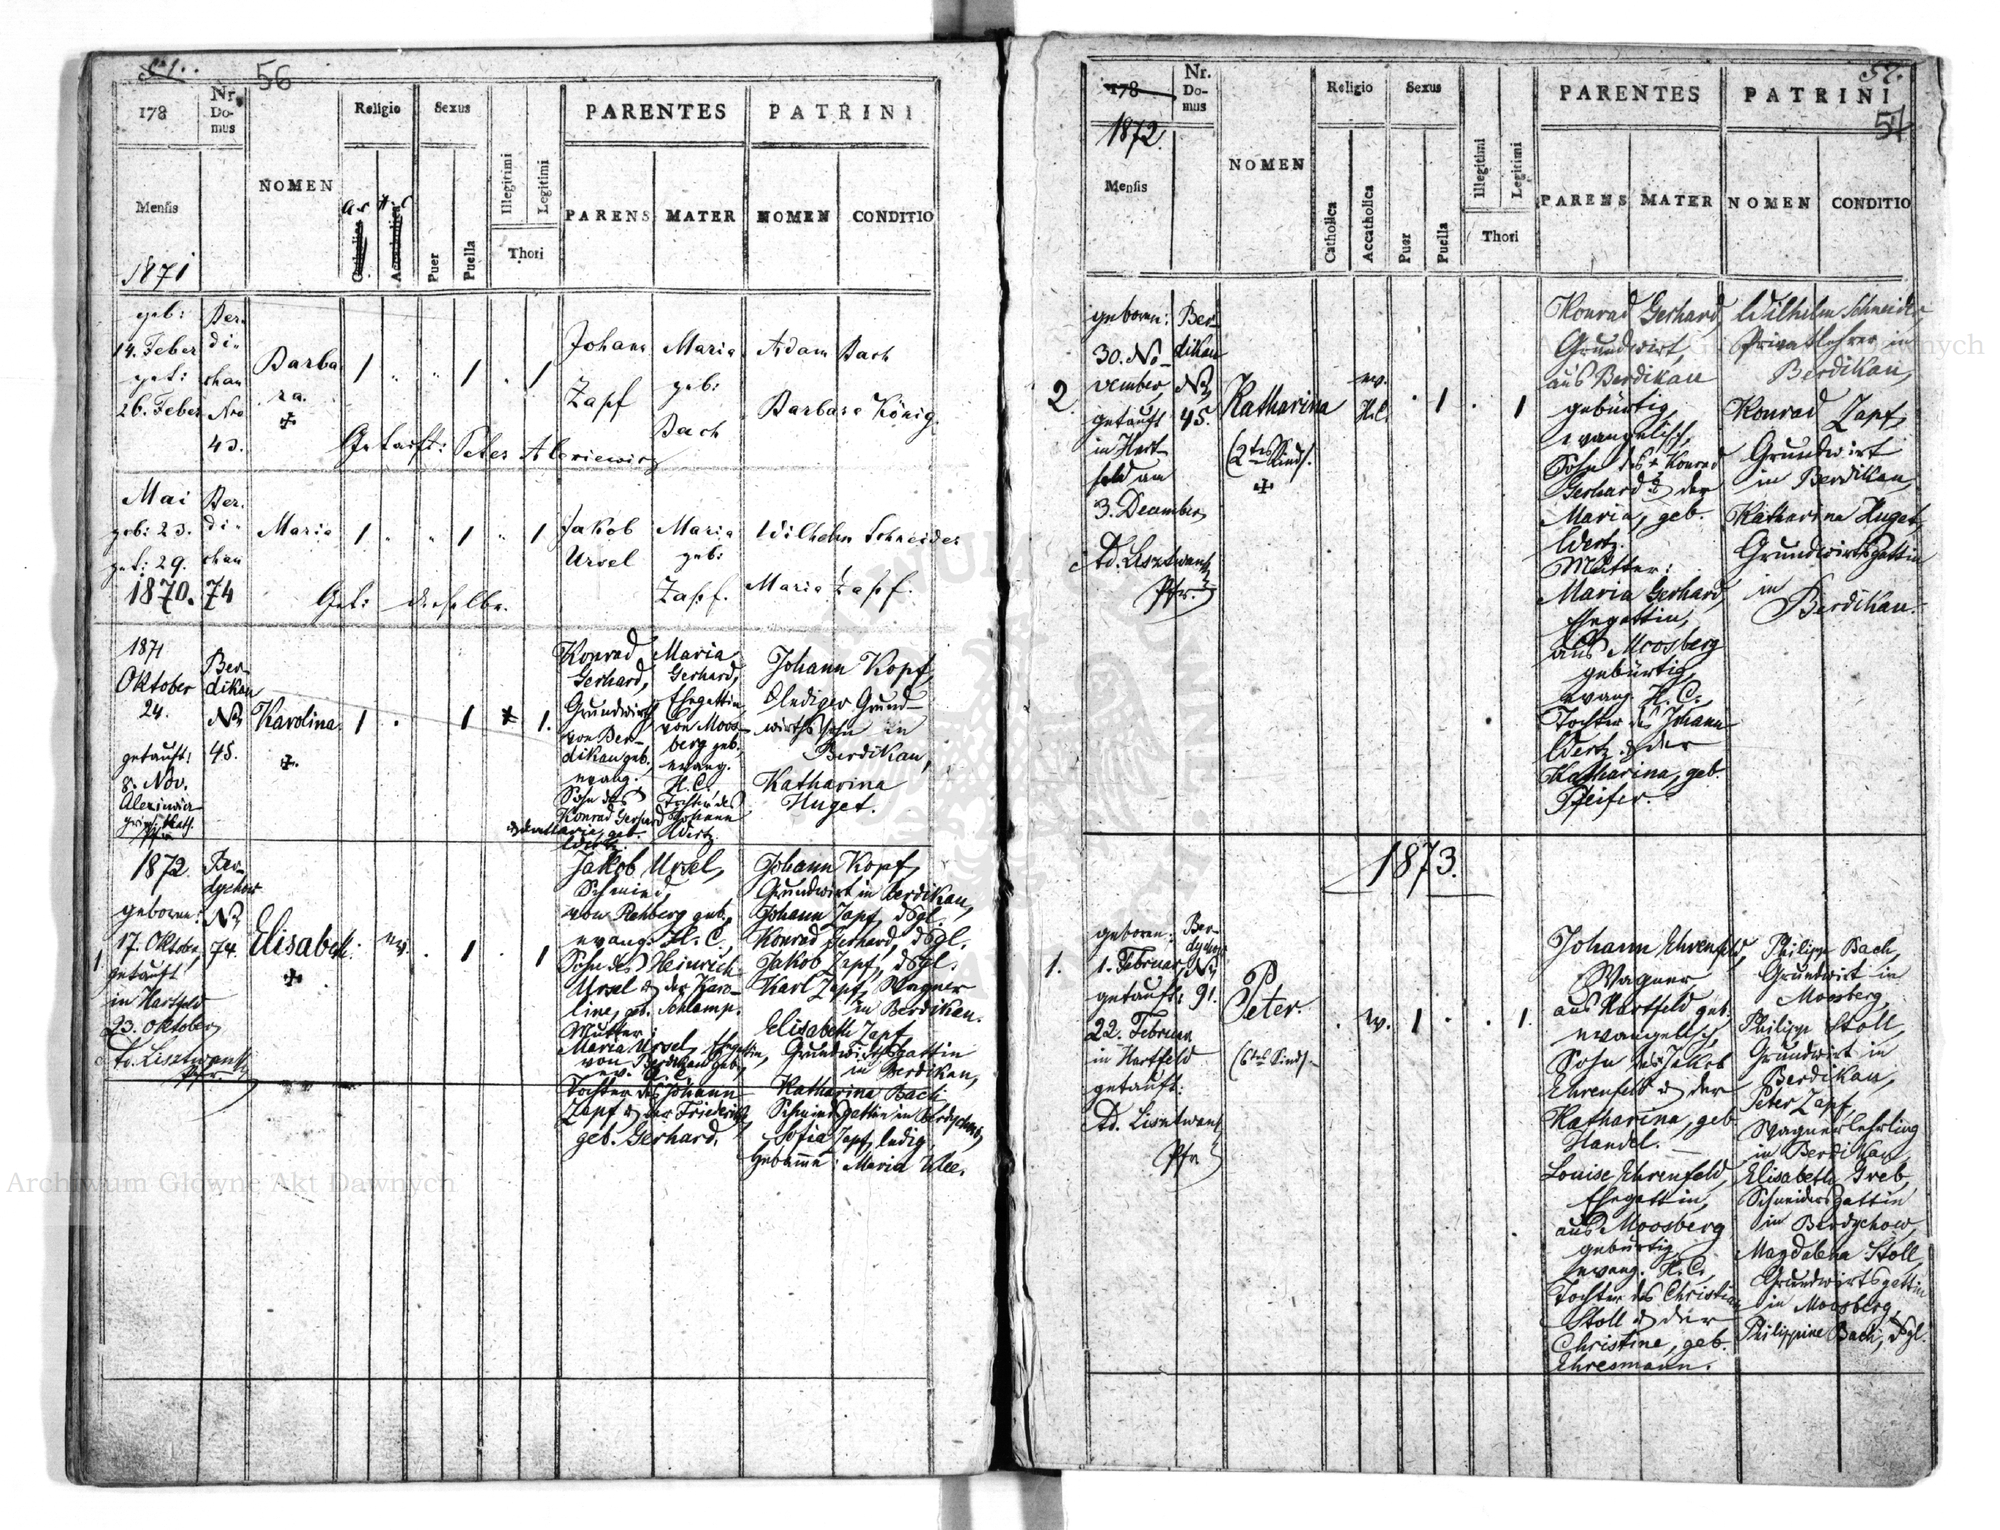 56
178
Nr.
Do-
mus
NOMEN
Religio
Sexus
Illegitimi
Legitimi
Thori
Puer
Puella
PARENTES
PATRINI
PARENS
MATER
NOMEN
CONDITIO
Mensis
1871
geb:
14. Feber
get:
26. Feber
Ber-
di-
chau
Nro
43.
Barba
ra.
Johann
Zapf
Maria
geb:
Bach
Adam Bach
Barbara König.
Getauft: Peter
Mai
geb: 23.
get: 29.
1870.
Ber.
di-
chau
74
Maria
Jakob
Ursel
Maria
geb:
Zapf.
Wilhelm Schneider
Maria Zapf.
Get: derselbe.
1871
Oktober
24.
getauft:
8. Nov.
Ber-
dikau
No
45.
Karolina.
Konrad
Gerhard,
Grundwirth
von Ber-
dikau geb.,
evang.
Sohn des
Konrad Gerhard
Maria
Gerhard,
Ehegattin
von Moos-
berg geb.
evang.
H. C.
Tochter des
Johann
Wertz.
Johann Kopf,
lediger Grund-
wirthssohn in
Berdikau,
Katharina
Huget.
1.
1872
geboren:
17. Oktober,
getauft
in Hartfeld
23. Oktober
Ad. Lisztwan
Pfr.
Ber-
dychow
No
74.
Elisabeth.
ev.
Jakob Ursel,
Schmied,
von Rehberg geb.,
evang. H. C.,
Sohn des Heinrich
Ursel & der Karo-
line, geb. Schlamp.
Mutter:
Maria Ursel, Ehegattin,
von Berdikau geb.,
ev. H. C.
Tochter des Johann
Zapf & der Friederike
geb. Gerhard.
Johann Kopf,
Grundwirt in Berdikau,
Johann Zapf, dsgl.
Konrad Gerhard, dsgl.
Jakob Zapf, dsgl.
Karl Zapf, Wagner
in Berdikau.
Elisabeth Zapf
Grundwirthsgattin
in Berdikau,
Katharina Bach
Schmiedsgattin in Berdychow,
Sofia Zapf, ledig,
Hebamme: Maria Klee.
57.
54
178
1872.
Mensis
Nr.
Do-
mus
NOMEN
Religio
Catholica
Accatholica
Sexus
Puer
Puella
Illegitimi
Legitimi
Thori
PARENTES
PATRINI
PARENS
MATER
NOMEN
CONDITIO
2.
geboren:
30. No-
vember,
getauft
in Hart-
feld am
3. December
Ad. Lisztwan
Pfr.
Ber-
dikau
No
45.
Katharina
(2tes Kind).
ev.
H.C.
Konrad Gerhard,
Grundwirt,
aus Berdikau
gebürtig,
evangelisch,
Sohn des Konrad
Gerhard & der
Maria, geb.
Wertz.
Mutter:
Maria Gerhard,
Ehegattin,
aus Moosberg
gebürtig,
evang. H. C.,
Tochter des Johann
Wertz & der
Katharina, geb.
Pfeifer.
Wilhelm Schneider,
Privatlehrer in
Berdikau,
Konrad Zapf,
Grundwirt
in Berdikau,
Katharina Huget,
Grundwirthsgattin
in
Berdikau.
1873.
1.
geboren:
1. Februar,
getauft:
22. Februar
in Hartfeld
getauft:
Ad. Lisztwan
Pfr.
Ber-
dychow
No
91.
Peter.
(6tes Kind).
ev.
Johann Ehrenfeld,
Wagner
aus Hartfeld geb.
evangelisch,
Sohn des Jakob
Ehrenfeld & der
Katharina, geb.
Handel.
Louise Ehrenfeld,
Ehegattin,
aus Moosberg
gebürtig,
evang. H. C.,
Tochter des Christian
Stoll & der
Christine, geb.
Ehresmann.
Philipp Bach,
Grundwirt in
Moosberg,
Philipp Stoll,
Grundwirt in
Berdikau,
Peter Zapf,
Wagnerlehrling
in Berdikau,
Elisabeth Greb,
Schneidersgattin
in Berdychow,
Magdalena Stoll,
Grundwirtsgattin
in Moosberg,
Philippine Bach, dsgl.
Archiwum Główne Akt Dawnych